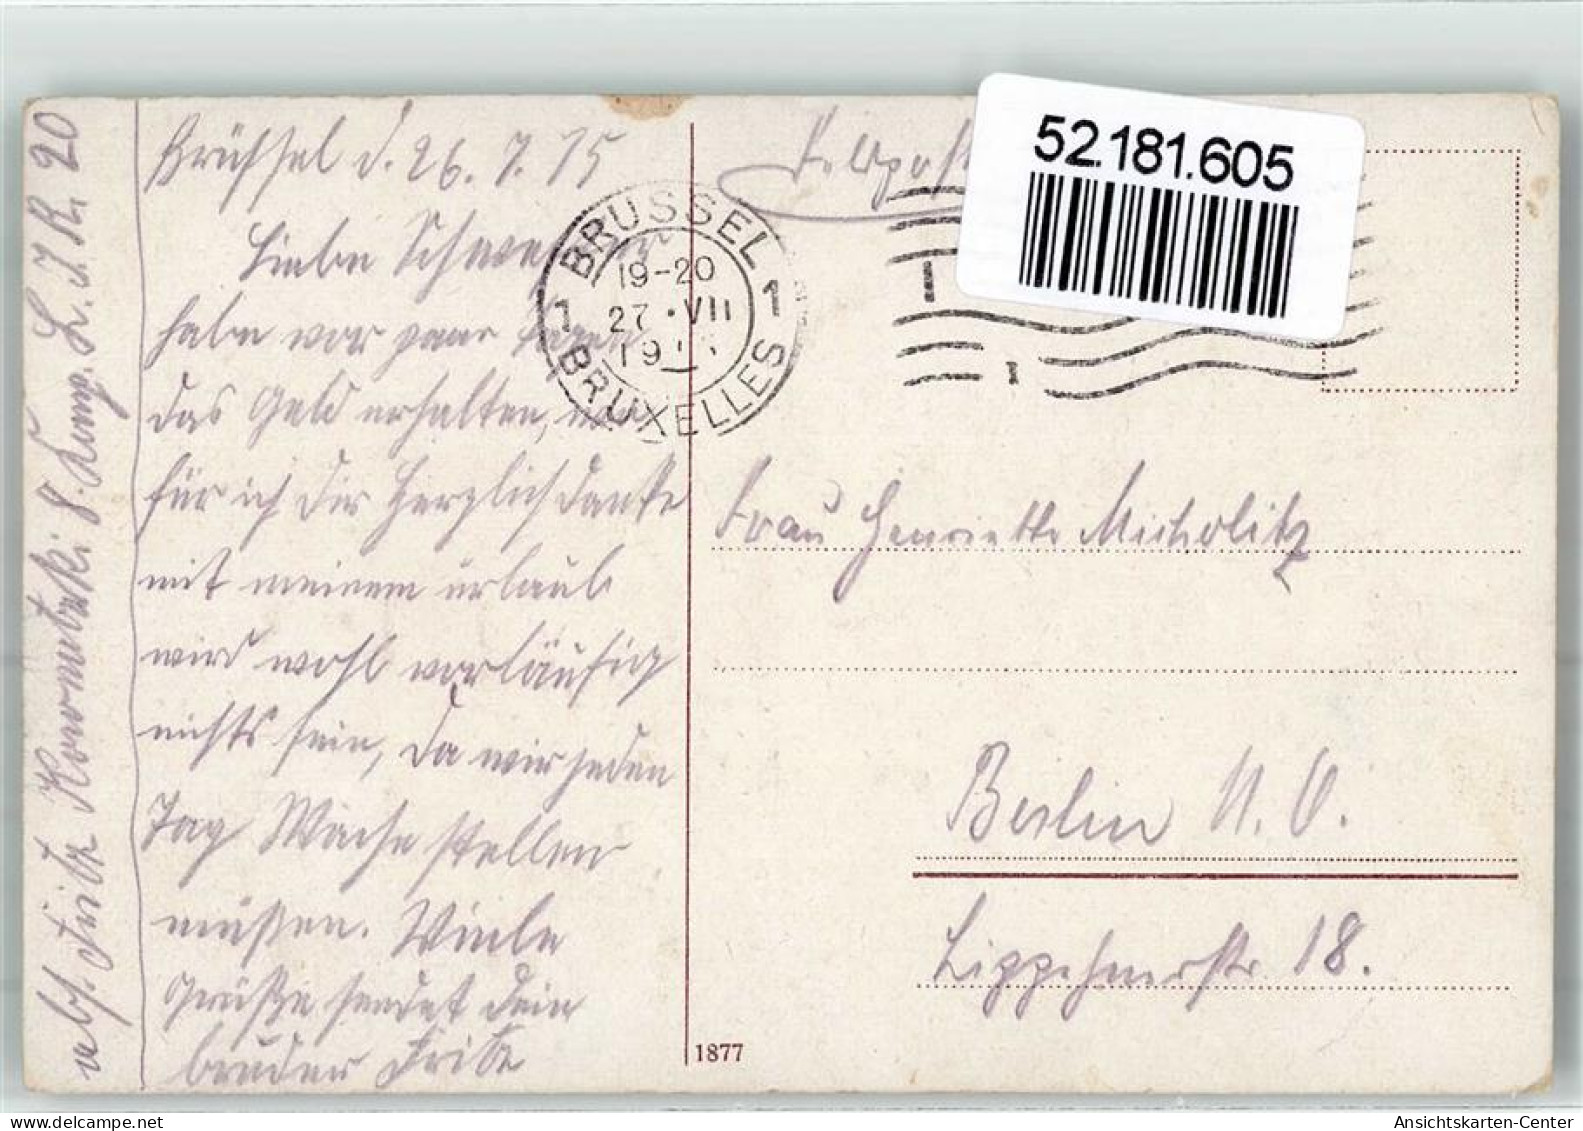 Brüssel d. 26. 7. 15
Liebe Schwester
habe vor paar Tagen
das Geld erhalten, wo
für ich dir Herzlich danke
mit meinem urlaub
wird wohl vorläufig
nichts sein, da wir jeden
Tag Wache stellen
müßen. Viele
Grüße sendet dein
bruder Fritz
abs. Fritz 8. Komp. L. I. R. 20
Feldpost
BRÜSSEL
1 19-20 1
27 · VII
19
BRUXELLES
1
52.181.605
Frau Henriette Micholitz
Berlin N. O.
Lippehnerstr 18.
1877
Ansichtskarten-Center